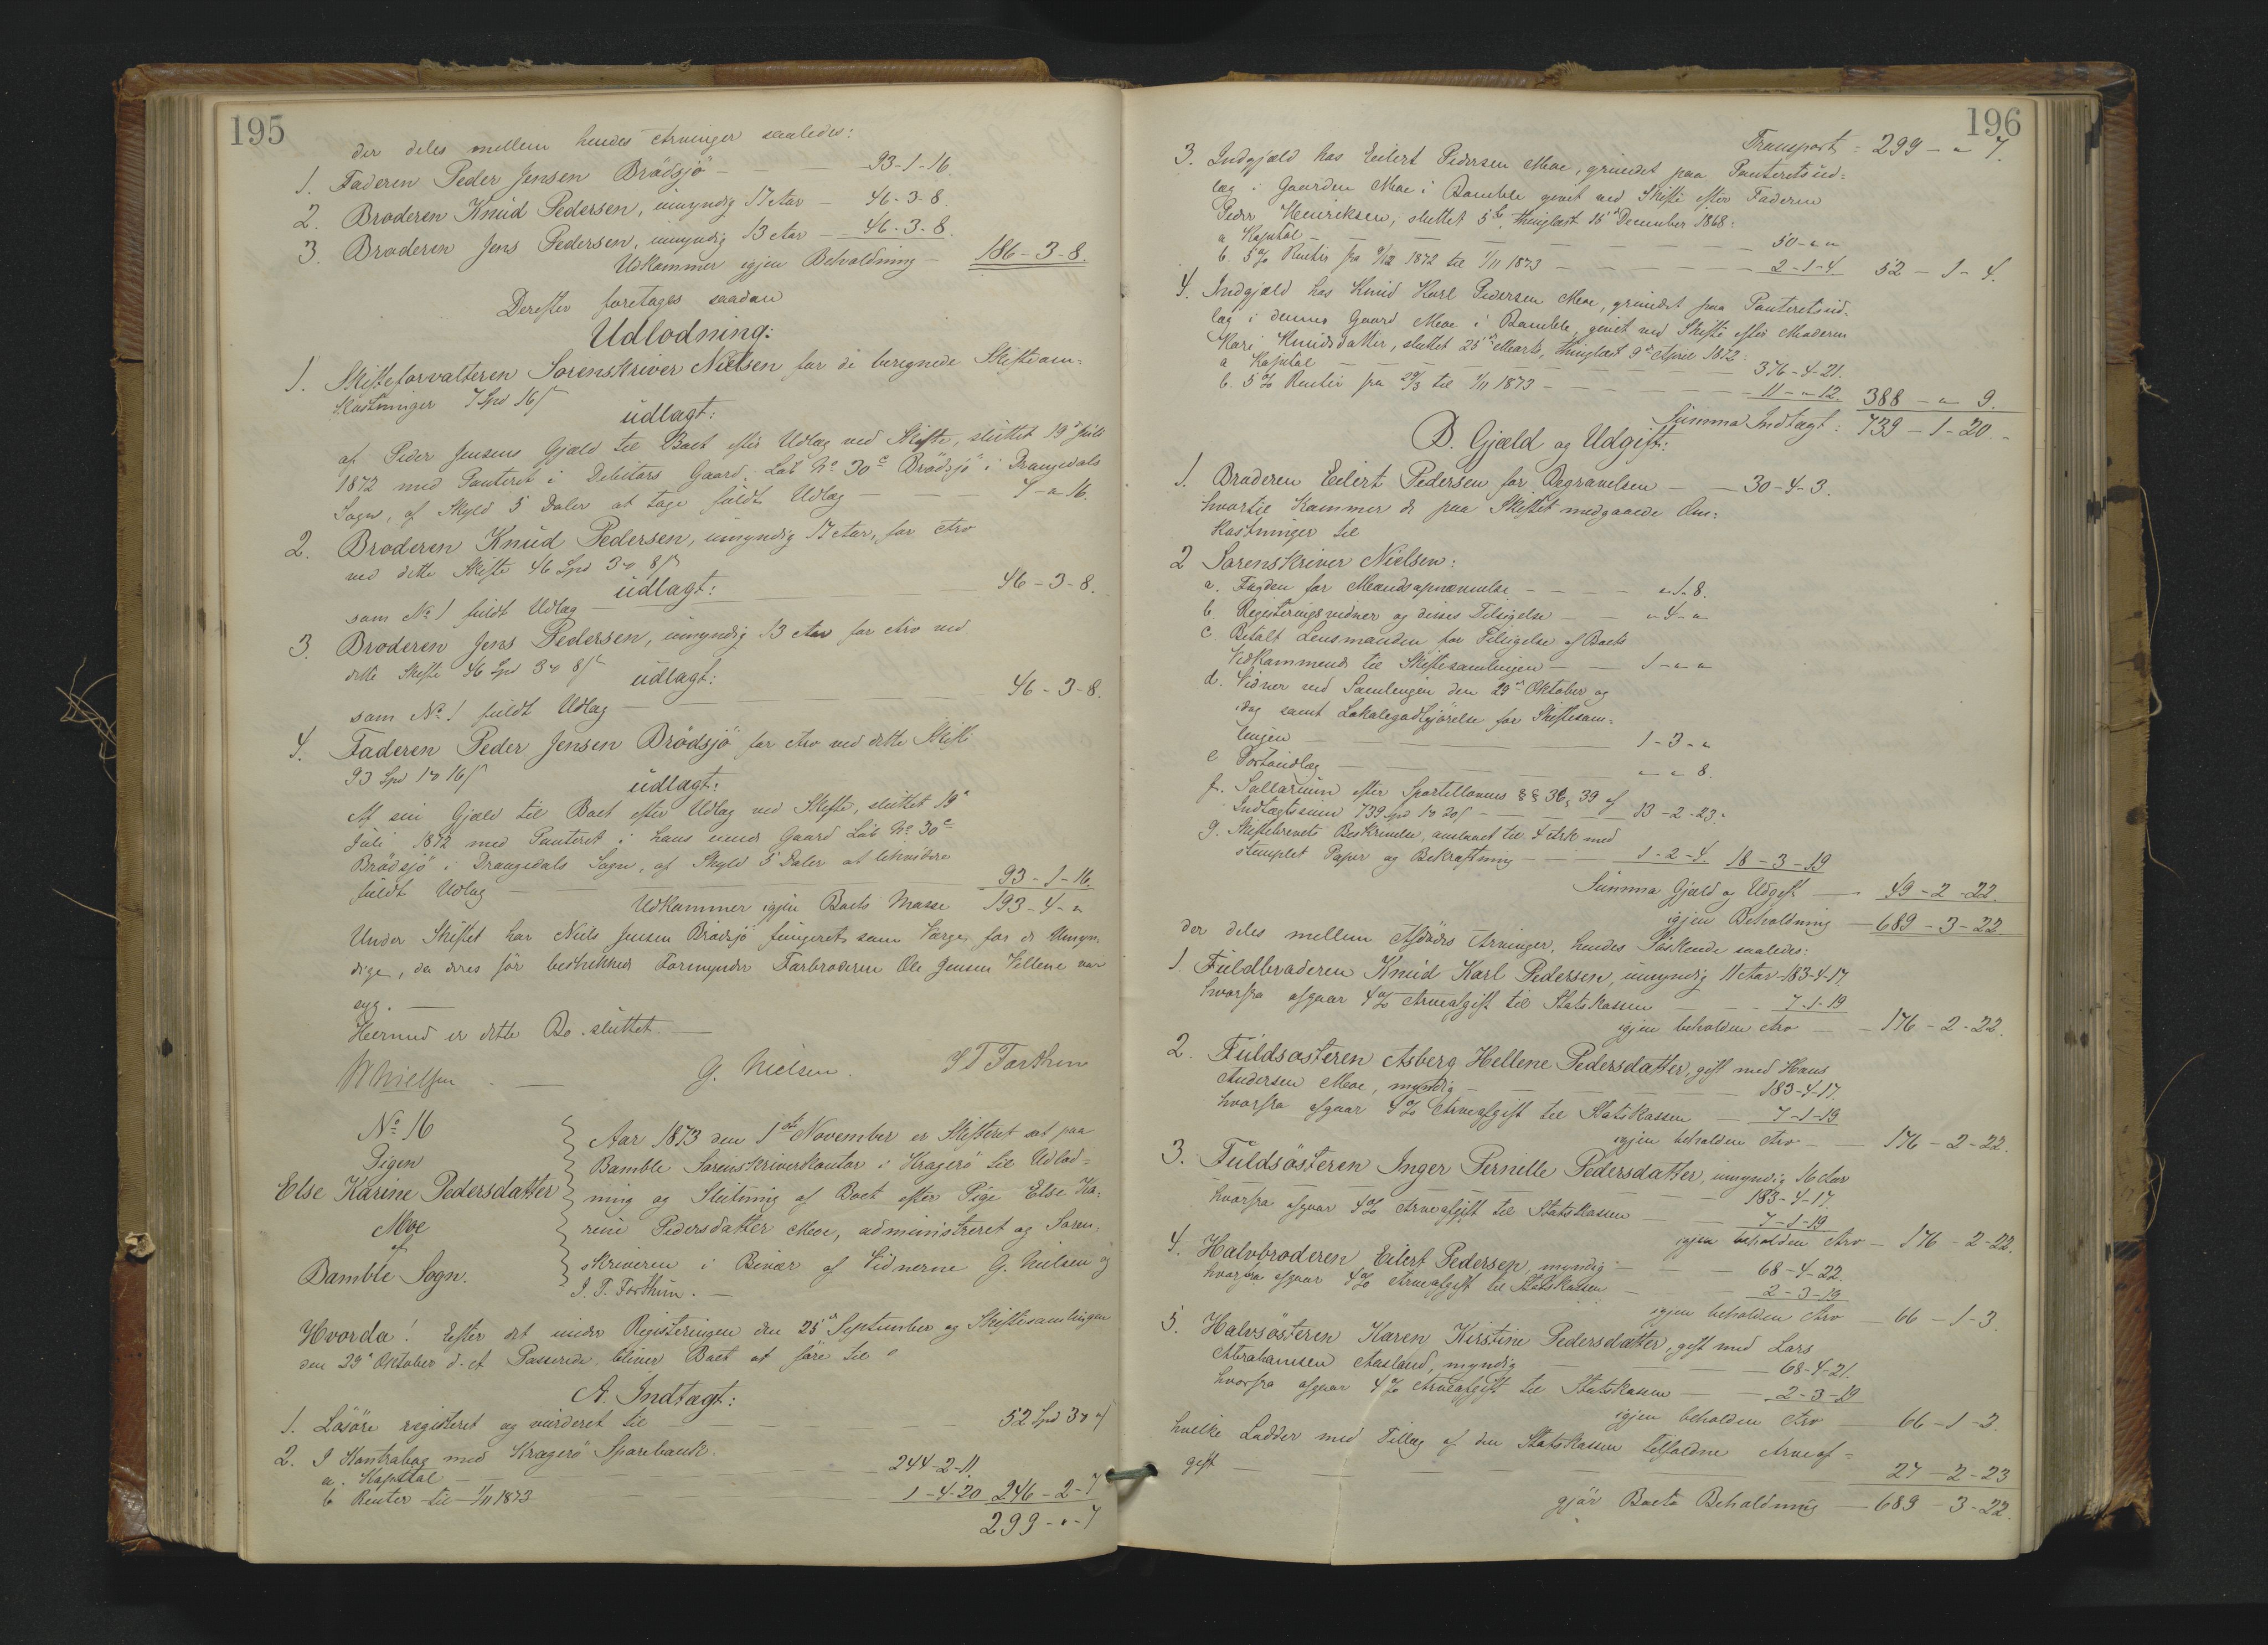 195
der deles mellem hendes Arvinger saaledes:
1. Faderen Peder Jensen Brödsjö - - 93-1-16.
2. Broderen Knud Pedersen, umyndig 17 Aar - 46-3-8.
3. Broderen Jens Pedersen, umyndig 13 Aar - 46-3-8.
Udkommer igjen Beholdning - 186-3-8.
Derefter foretages saadan
Udlodning:
1. Skifteforvalteren Sorenskriver Nielsen for de beregnede Skifteom-
kostninger 7 Spd 16 ß
udlagt:
af Peder Jensens Gjæld til Boet efter Udlæg ved Skifte, sluttet 19de Juli
1872 med Panteret i Debitors Gaard, Løb No 30c Brödsjö i Drangedals
Sogn, af Skyld 5 Daler at tage fuldt Udlæg - - - 7-"-16.
2. Broderen Knud Pedersen, umyndig 17 Aar, for Arv
ved dette Skifte 46 Spd 3 ort 8 ß
udlagt:
som No 1 fuldt Udlæg - - - 46-3-8.
3. Broderen Jens Pedersen, umyndig 13 Aar for Arv ved
dette Skifte 46 Spd 3 ort 8 ß
udlagt:
som No 1 fuldt Udlæg - - - 46-3-8.
4. Faderen Peder Jensen Brödsjö for Arv ved dette Skifte
93 Spd 1 ort 16 ß
udlagt:
Af sin Gjæld til Boet efter Udlæg ved Skifte, sluttet 19de
Juli 1872 med Panteret i hans Gaard Løb No 30c
Brödsjö i Drangedals Sogn, af Skyld 5 Daler at likvidere
fuldt Udlæg - - - 93-1-16.
Udkommer igjen Boets Masse 193-4-"
Under Skiftet har Niels Jensen Brödsjö fungeret som Værge for de Umyn-
dige, da deres før beskikkede Formynder Farbroderen Ole Jensen Vellene var
syg. -
Hermed er dette Bo sluttet. -
G. Nielsen. J T Forthun
No 16
Pigen
Else Karine Pedersdatter
Moe
af
Bamble Sogn.
Aar 1873 den 1ste November er Skifteret sat paa
Bamble Sorenskriverkontor i Kragerö til Udlod-
ning og Slutning af Boet efter Pige Else Ka-
rine Pedersdatter Moe, administreret og Soren-
skriveren i Bivær af Vidnerne G. Nielsen og
J. T. Forthun. -
Hvorda! Efter det under Registeringen den 25de September og Skiftesamlingen
den 29de Oktober d. A. Passerede, bliver Boet at føre til
A. Indtægt:
1. Løsøre registeret og vurderet til - - - 52 Spd 3 ort " ß
2. I Kontrabog med Kragerö Sparebank.
a. Kapital - - - 244-2-11.
b Renter til 1/11 1873 - - - 1-4-20 246-2-7
299-"-7
196
Transport: 299-"-7.
3. Indgjæld hos Eilert Pedersen Moe, grundet paa Panteretsud-
læg i Gaarden Moe i Bamble givet ved Skifte efter Faderen
Peder Henriksen, sluttet 5te, thinglæst 15de December 1868:
a Kapital - - - 50-"-"
b. 5 % Renter fra 9/12 1872 til 1/11 1873 - - - 2-1-4. 52-1-4.
4. Indgjæld hos Knud Karl Pedersen Moe, grundet paa Panteretsud-
læg i dennes Gaard Moe i Bamble, givet ved Skifte efter Moderen
Kari Knudsdatter, sluttet 25de Marts, thinglæst 9de April 1872:
a Kapital - - - 376-4-21.
b. 5 % Renter fra 29/3 til 1/11 1873 - - - 11-"-12. 388-"-9.
Summa Indtægt: 739-1-20.-
B. Gjæld og Udgift:
1. Broderen Eilert Pedersen for Begravelsen - - 30-4-3.
hvortil kommer de paa Skiftet medgaaede Om-
kostninger til
2 Sorenskriver Nielsen:
a. Fogden for Mændsopnævnelse - - - "-1-8.
b. Registeringsvidner og disses Tilsigelse - - "-4-"
c. Betalt Lensmanden for Tilsigelse af Boets
Vedkommende til Skiftesamlingen - - 1-"-"
d. Vidner ved Samlingen den 29de Oktober og
idag samt Lokalegodtgjörelse for Skiftesam-
lingen - - - 1-3-"
e Portoudlæg - - - "-"-8.
f. Sallarium efter Sportellovens §§ 36, 39 af
Indtægtssum 739 Spd 1 ort 20 ß - - - 13-2-23.
g. Skiftebrevets Beskrivelse, anslaaet til 4 Ark med
stemplet Papir og Bekræftning - - - 1-2-4. 18-3-19
Summa Gjæld og Udgift - 49-2-22.
igjen Beholdning - 689-3-22
der deles mellem Afdödes Arvinger, hendes Söskende saaledes:
1. Fuldbroderen Knud Karl Pedersen, umyndig 11 Aar - 183-4-17.
hvorfra afgaar 4 % Arveafgift til Statskassen - - - 7-1-19
igjen beholden Arv - - 176-2-22.
2. Fuldsøsteren Asberg Hellene Pedersdatter, gift med Hans
Andersen Moe, myndig - - - 183-4-17.
hvorfra afgaar 4 % Arveafgift til Statskassen - 7-1-19
igjen beholden Arv - - 176-2-22.
3. Fuldsösteren Inger Pernille Pedersdatter, umyndig 16 Aar
- - - 183-4-17.
hvorfra afgaar 4 % Arveafgift til Statskassen - - 7-1-19
igjen beholden Arv - 176-2-22.
4. Halvbroderen Eilert Pedersen, myndig - - - 68-4-22.
hvorfra afgaar 4 % Arveafgift til Statskassen - - 2-3-19
igjen beholden Arv - 66-1-3.
5. Halvsösteren Karen Kirstine Pedersdatter, gift med Lars
Abrahamsen Aasland, myndig - - - 68-4-21.
hvorfra afgaar 4 % Arveafgift til Statskassen - - 2-3-19
igjen beholden Arv - 66-1-2.
hvilke Lodder med Tillæg af den Statskassen tilfaldne Arveaf-
gift - - - 27-2-23
gjör Boets Beholdning - 689-3-22.